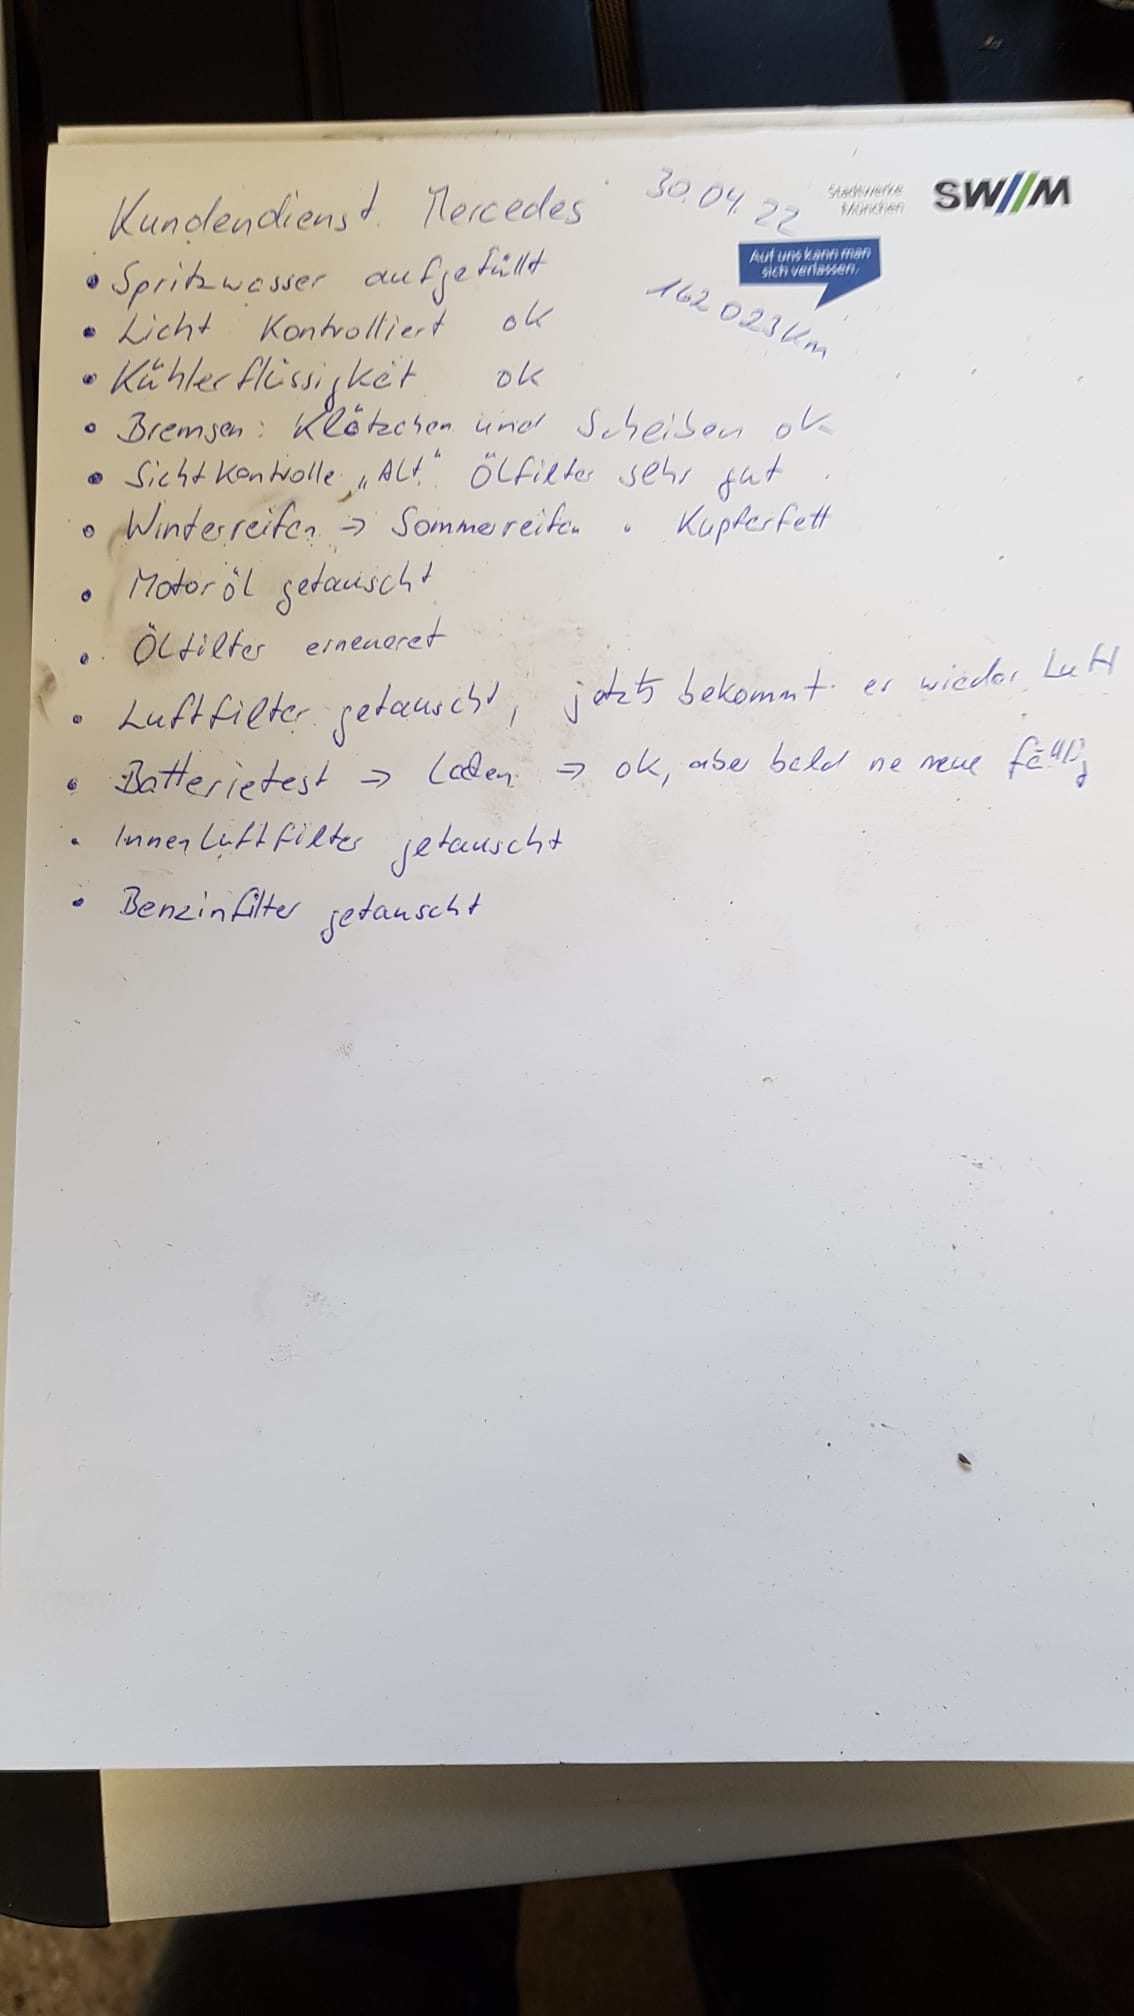 Kundendienst Mercedes 30.04.22
Stadtwerke
München
SW//M
Auf uns kann man
sich verlassen.
162 023 km
• Spritzwasser aufgefüllt
• Licht Kontrolliert ok
• Kühlerflüssigkeit ok
• Bremsen: Klötzchen und Scheiben ok
• Sichtkontrolle „Alt“ Ölfilter sehr gut
• Winterreifen => Sommerreifen • Kupferfett
• Motoröl getauscht
• Ölfilter erneueret
• Luftfilter getauscht, jetzt bekommt er wieder Luft
• Batterietest => Laden => ok, aber bald ne neue fällig
• Innenluftfilter getauscht
• Benzinfilter getauscht